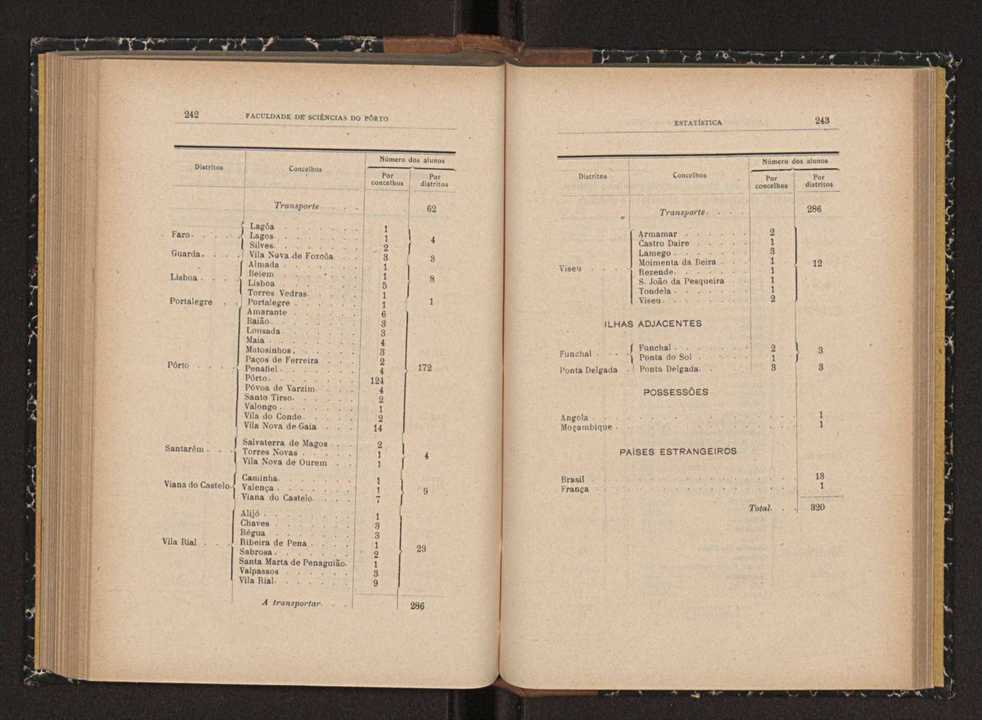 242 FACULDADE DE SCIÊNCIAS DO PÔRTO
Distritos Concelhos Número dos alunos
Por concelhos Por distritos
Transporte 62
Lagôa 1
Faro Lagos 1 4
Silves 2
Guarda Vila Nova de Fozcôa 3 3
Almada 1
Belem 1
Lisboa Lisboa 5 8
Torres Vedras 1
Portalegre Portalegre 1 1
Amarante 6
Baião 3
Lousada 3
Maia 4
Matosinhos 3
Paços de Ferreira 2
Pôrto Penafiel 4 172
Pôrto 124
Póvoa de Varzim 4
Santo Tirso 2
Valongo 1
Vila do Conde 2
Vila Nova de Gaia 14
Salvaterra de Magos 2
Santarêm Torres Novas 1 4
Vila Nova de Ourem 1
Caminha 1
Viana do Castelo Valença 1 9
Viana do Castelo 7
Alijó 1
Chaves 3
Régua 3
Vila Rial Ribeira de Pena 1 23
Sabrosa 2
Santa Marta de Penaguião 1
Valpassos 3
Vila Rial 9
A transportar 286
ESTATÍSTICA 243
Distritos Concelhos Número dos alunos
Por concelhos Por distritos
Transporte 286
Armamar 2
Castro Daire 1
Lamego 3
Moimenta da Beira 1
Viseu Rezende 1 12
S. João da Pesqueira 1
Tondela 1
Viseu 2
ILHAS ADJACENTES
Funchal Funchal 2 3
Ponta do Sol 1
Ponta Delgada Ponta Delgada 3 3
POSSESSÕES
Angola 1
Moçambique 1
PAÍSES ESTRANGEIROS
Brasil 13
França 1
Total 320